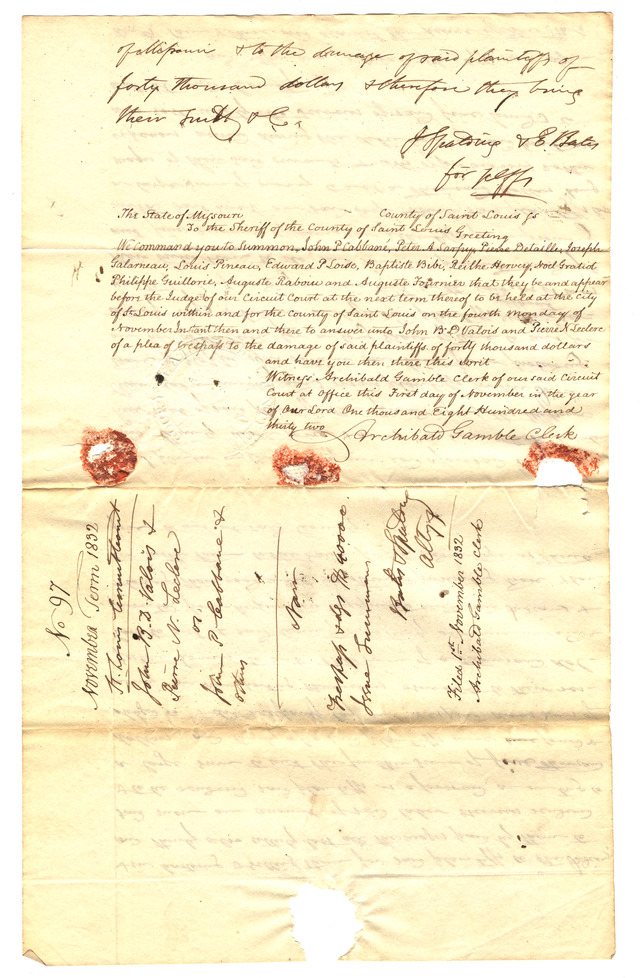 of Missouri & to the damage of said plaintiffs of
forty thousand dollars & therefore they bring
their suit & C.
J Spalding & E. Bates
for plffs
The State of Missouri County of Saint Louis ss
To the Sheriff of the County of Saint Louis
Greeting
We Command you to Summon, John P Cabbané, Peter A Sarpuy, Pierre Delaille, Joseph
Galarneau, Louis Pineau, Edward P Loise, Baptiste Bibi, Hervey, Noel Gratid
Philippe Guillorie, Auguste Rabouu and Auguste Fournier that they be and appear
before the Judge of our Circuit Court at the next term thereof to be held at the City
of St Louis within and for the County of Saint Louis on the fourth monday of
November Instant then and there to answer unto John B. D Valois and Pierre N. Leclerc
of a plea of trespass to the damage of said plaintiffs. of forty thousand dollars
and have you then there this writ
Witness Archibald Gamble Clerk of our said Circuit
Court at Office this First day of November in the year
of Our Lord One thousand Eight Hundred and
thirty two Archibald Gamble Clerk
No 97
November Term 1832
St. Louis Circuit Court
John B. D. Valois &
Pierre N. Leclerc
vs
John P Cabbane &
others
Narr
Trespass
Issue Summons
Bates & Spalding
attys
Filed 1st November 1832
Archibald Gamble Clerk